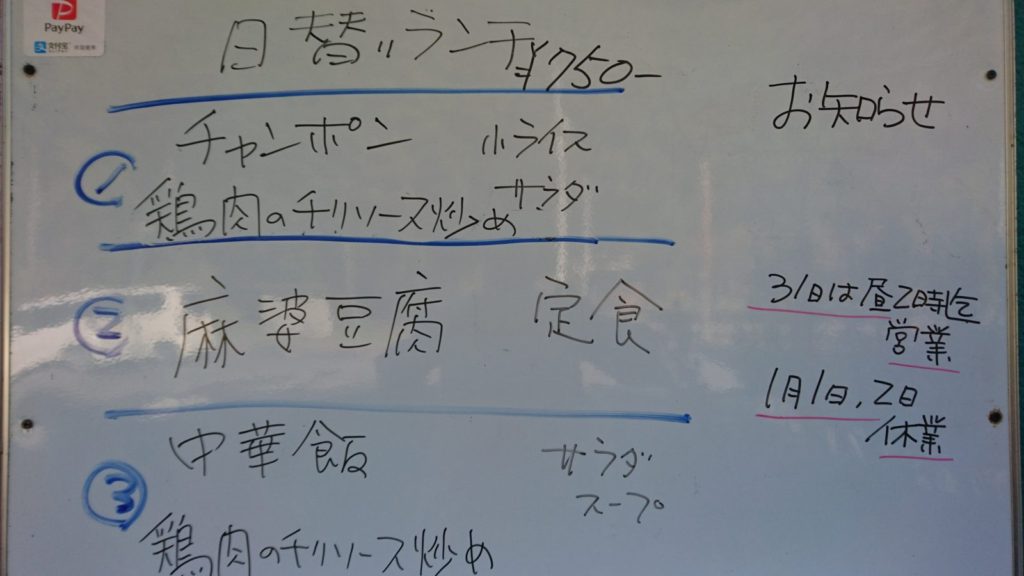 PayPay
支付宝
日替りランチ ¥750-
① チャンポン 小ライス
サラダ
鶏肉のチリソース炒め
② 麻婆豆腐 定食
③ 中華飯 サラダ
スープ
鶏肉のチリソース炒め
お知らせ
31日は昼2時迄
営業
1月1日,2日
休業